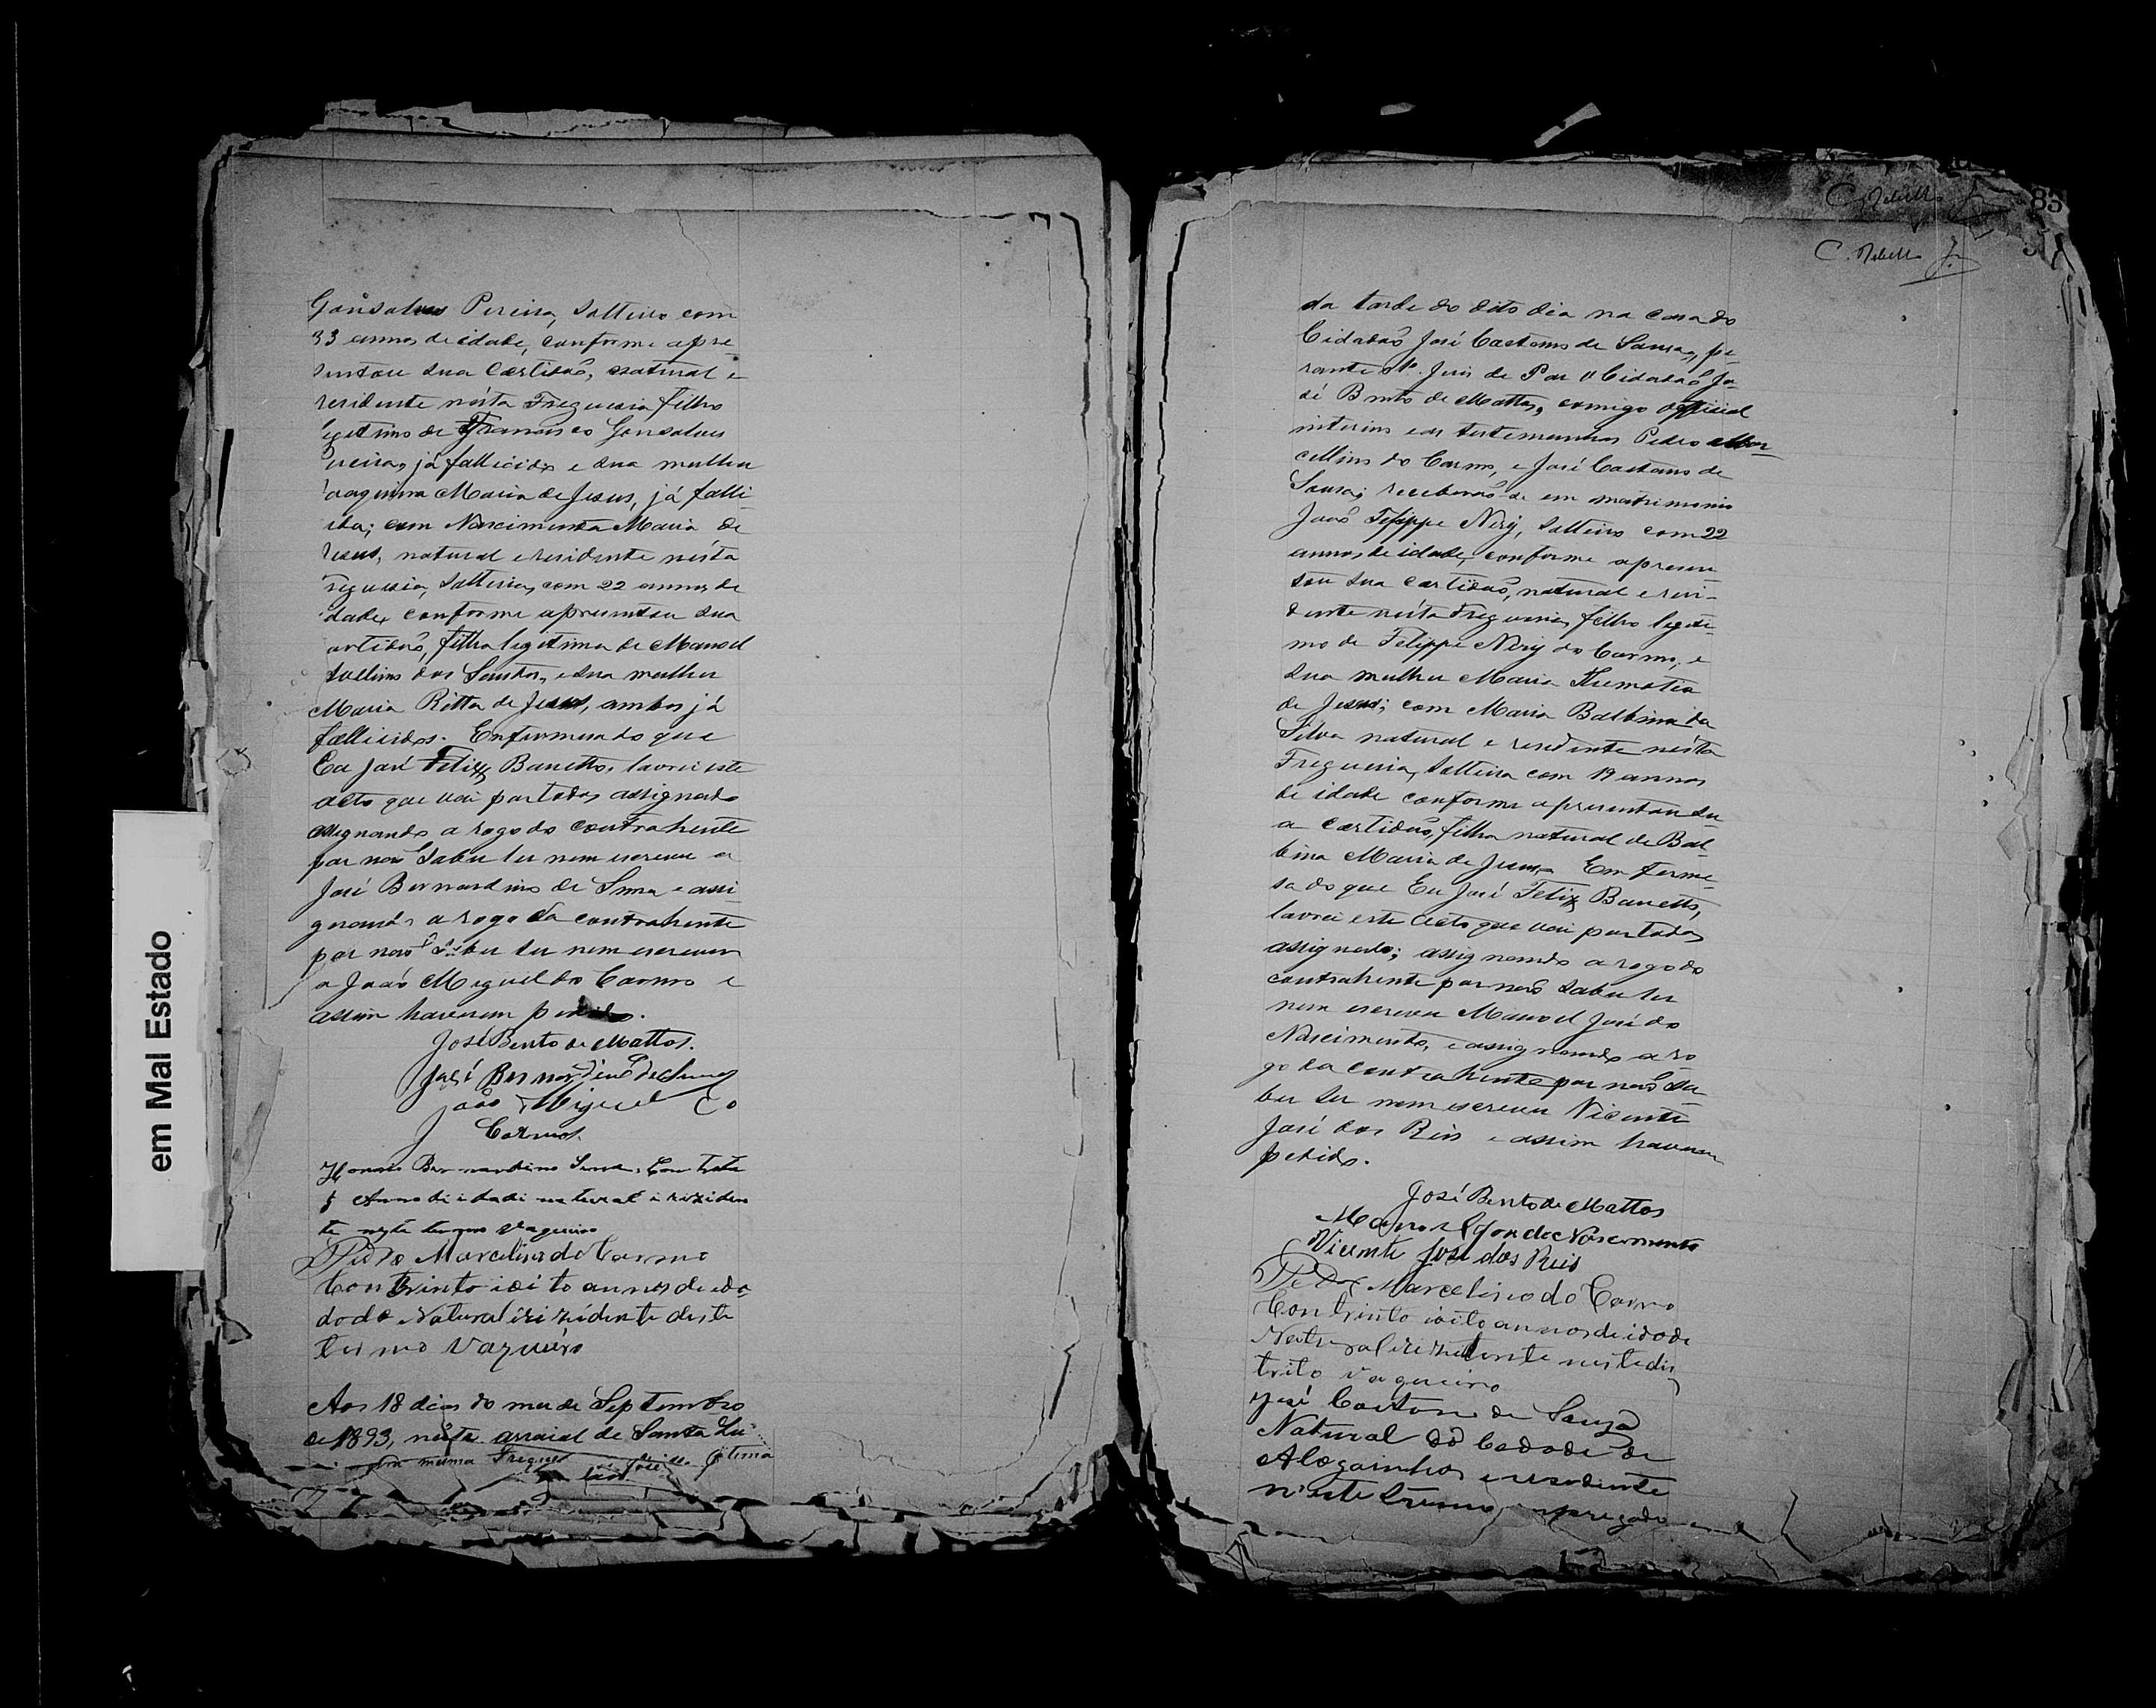 em Mal Estado
Gonsalves Pereira, solteiro com
33 annos de idade, conforme apre-
sentou sua Certidão, natural e
residente nésta Freguesia filho
egitimo de Francisco Gonsalves
ereira, já fallicido e sua mulher
oaquina Maria de Jesus, já falli-
ida; com Nascimenta Maria de
Jesus, natural e residente nésta
reguesia, solteira, com 22 annos de
dade, conforme apresentou sua
ertidão, filha legitima de Manoel
dos Santos, e sua mulher
Maria Ritta de Jesus, ambos já
fallicidos. Enfirmesado que
Eu José Felix Banetto, lavrei este
acto que vai por todos assignado
assignando a rogo do contrahente
por não saber ler nem escrever a
José Bernardino de Sena e assi
gnando a rogo da contrahente
por não saber ler nem escrever
a João Miguel do Carmo e
assim haverem pedido.
José Bento de Mattos.
José Bernardino de Senna
João Miguel Do
Carmo.
Bernardino Senna. Com trinta
Anno di idadi natural i riziden
te neste termo Vaqueiro
Pedro Marcelino do Carmo
Con trinto ioito annos de ida
dode Natural iri zidente deste
termo Vaqueiro
Aos 18 dias do mes de Septembro
de 1893, nésta arraial de Santa Lu
mesma Freguesia
85
C. Rebello Jr
C. Rebello Jr
da tarde do dito dia na casa do
Cidadão José Caetano de Sousa, pe-
rante o Juis de Pas o Cidadão Jo-
sé Bento de Mattos, comigo Official
interino e as testemunhas Pedro Mar
cellino do Carmo, e José Caetano de
Sousa; receberão-se em matrimonio
João Felippe Nery, solteiro com 22
annos de idade, conforme apresen
tou sua certidão, natural e resi-
dente nésta Freguesia, filho legiti-
mo de Felippe Nery do Carmo, e
sua mulher Maria
de Jesus; com Maria Balbina da
Silva natural e residente nésta
Freguesia, solteira com 19 annos
de idade conforme apresentou su-
a certidão, filha natural de Bal-
bina Maria de Jesus. Em firme-
sa do que Eu José Felix Banetto,
lavrei este acto que vai por todos
assignado; assignando a rogo do
contrahente por não saber ler
nem escrever Manoel José do
Nascimento, e assignando a ro
go da contrahente por não sa
ber ler nem escrever Vicente
José dos Reis e assim haverem
pedido.
José Bento de Mattos
Manoel José do Nascimento
Vicente José dos Reis
Pedro Marcelino do Carmo
Con trinto ioito annos de idade
Natural iri zidente neste dis
trito vaqueiro
José Caetano de Souza
Natural da Cedade de
Alagoinhas e residente
n'este termo empregado